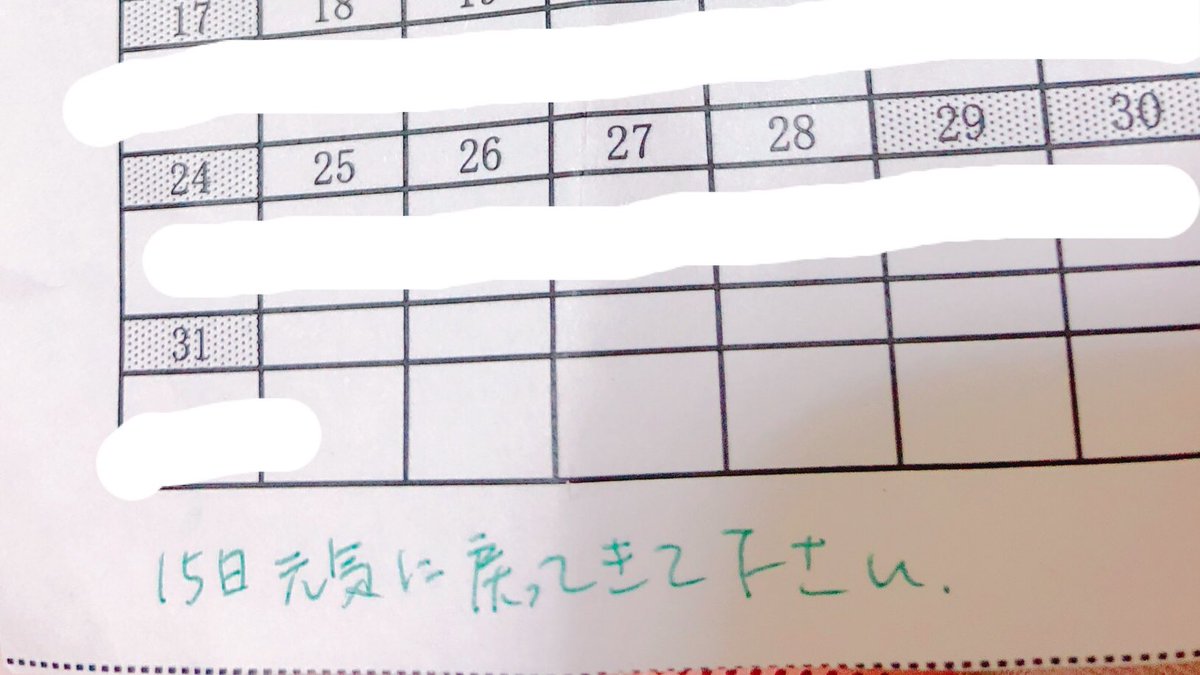 17 18 19
24 25 26 27 28 29 30
31
15日元気に戻ってきて下さい.